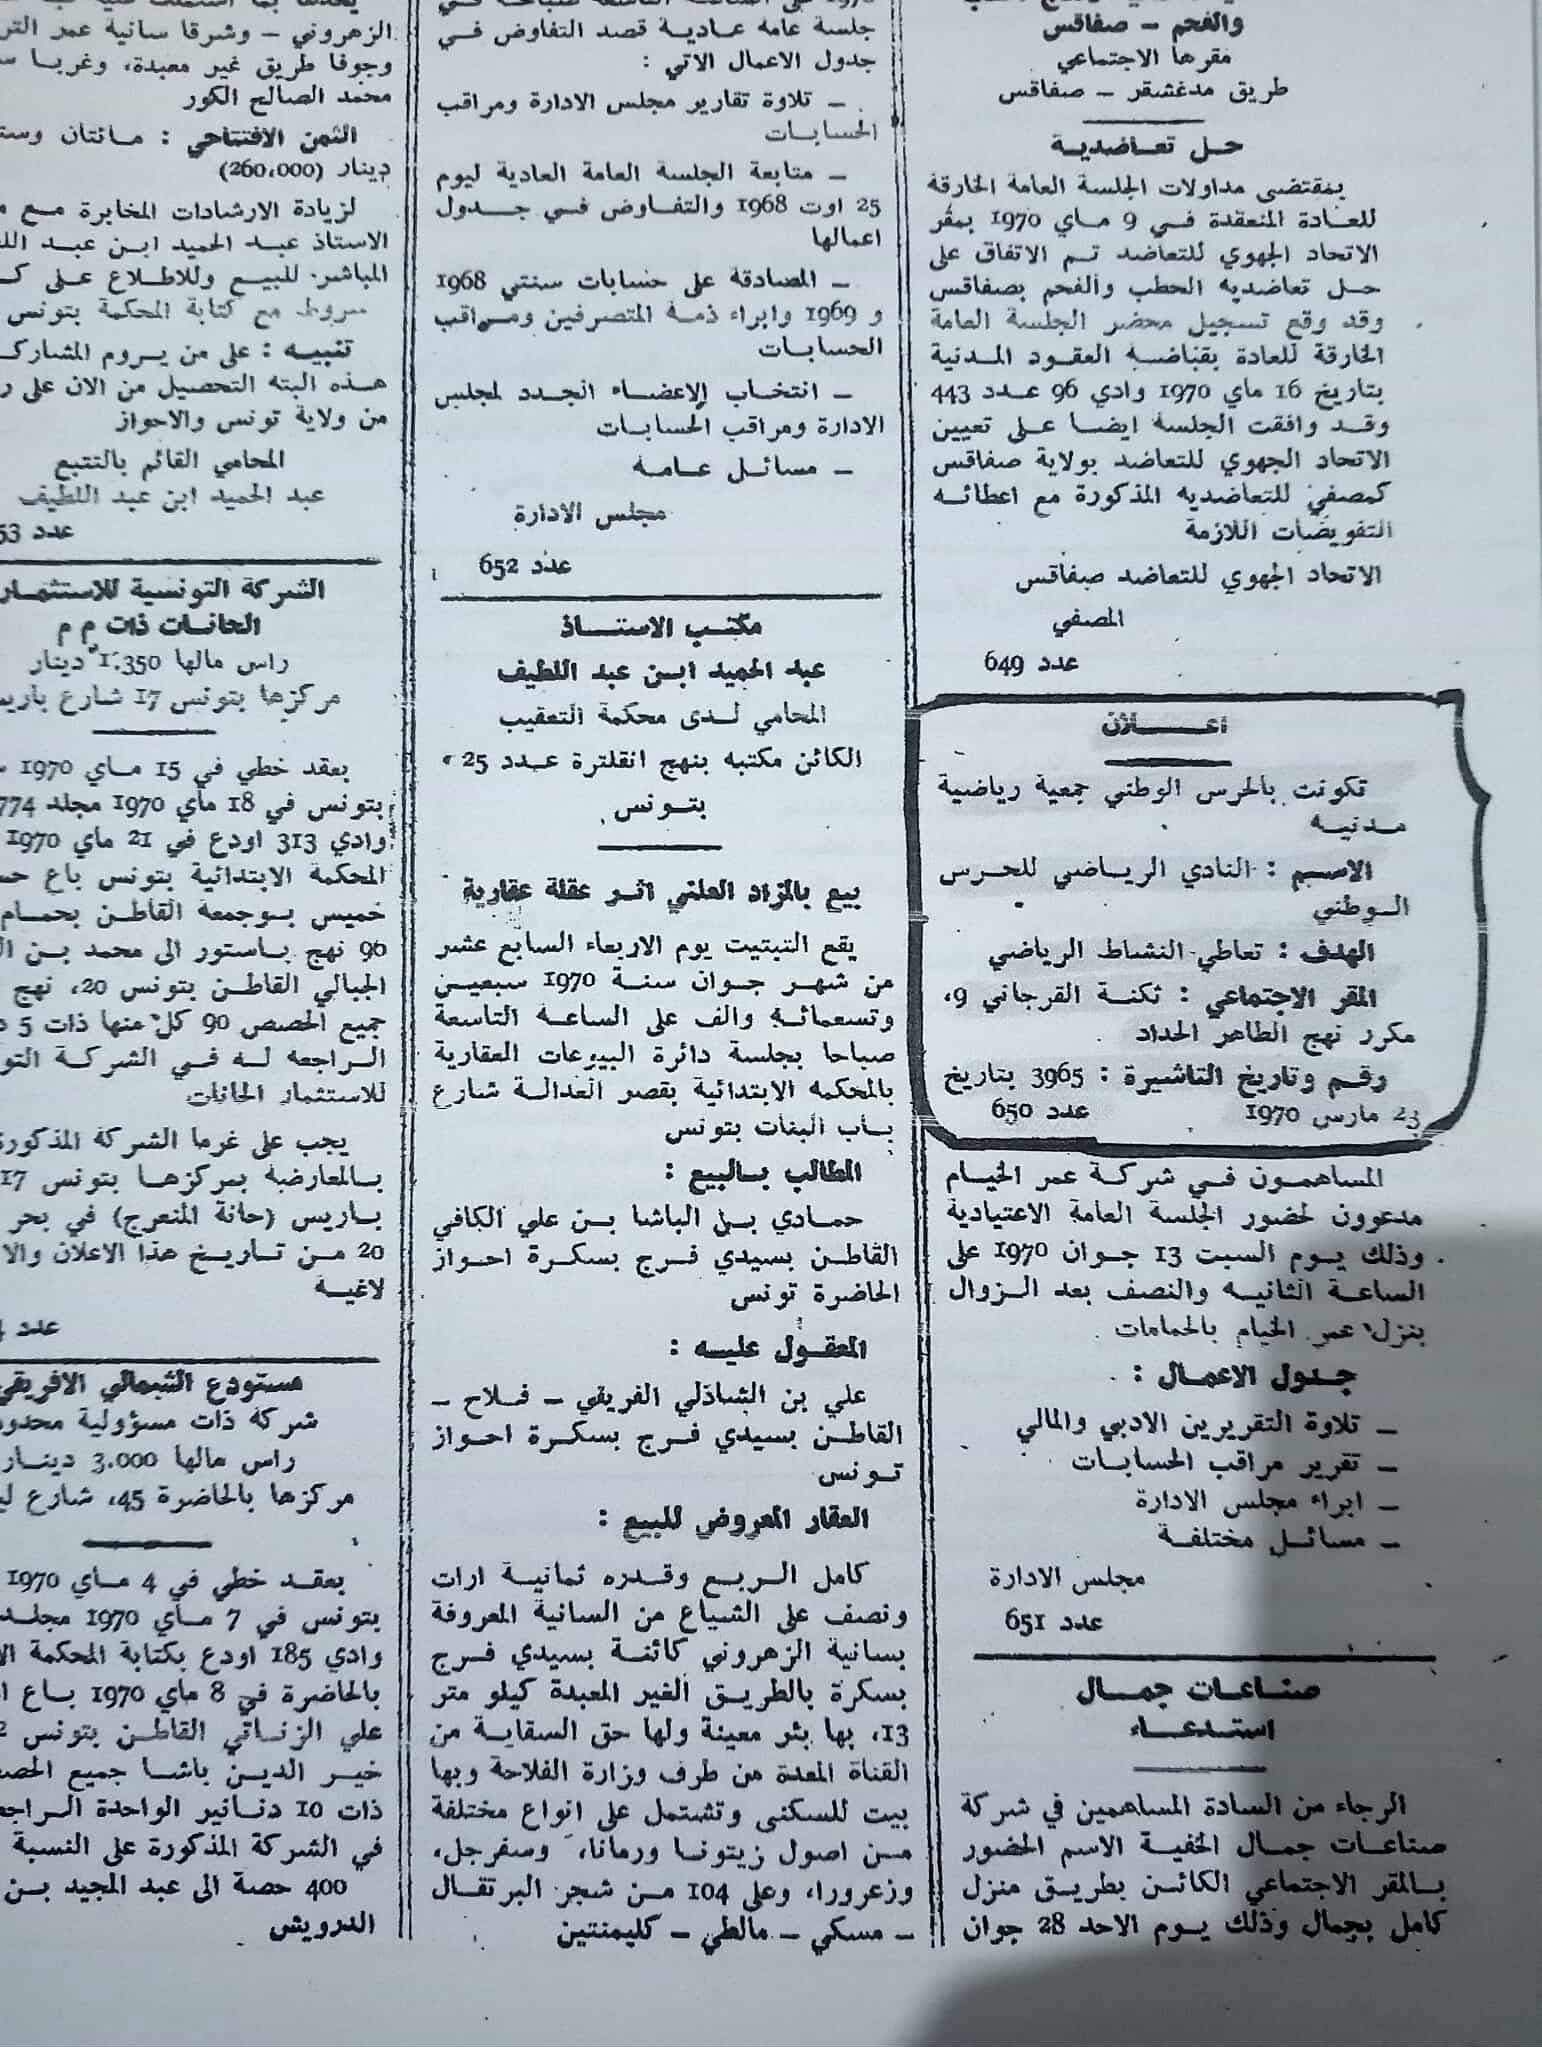 والفحم – صفاقس
مقرها الاجتماعي
طريق مدغشقر – صفاقس
حل تعاضدية
بمقتضى مداولات الجلسة العامة الخارقة
للعادة المنعقدة في 9 ماي 1970 بمقر
الاتحاد الجهوي للتعاضد تم الاتفاق على
حل تعاضديه الحطب والفحم بصفاقس
وقد وقع تسجيل محضر الجلسة العامة
الخارقة للعادة بقباضه العقود المدنية
بتاريخ 16 ماي 1970 وادي 96 عدد 443
وقد وافقت الجلسة ايضا على تعيين
الاتحاد الجهوي للتعاضد بولاية صفاقس
كمصفي للتعاضديه المذكورة مع اعطائه
التفويضات اللازمة
الاتحاد الجهوي للتعاضد صفاقس
المصفي
عدد 649
اعلان
تكونت بالحرس الوطني جمعية رياضية
مدنيه
الاسم : النادي الرياضي للحرس
الوطني
الهدف : تعاطي النشاط الرياضي
المقر الاجتماعي : ثكنة القرجاني 9،
مكرر نهج الطاهر الحداد
رقم وتاريخ التاشيرة : 3965 بتاريخ
23 مارس 1970 عدد 650
المساهمون في شركة عمر الخيام
مدعوون لحضور الجلسة العامة الاعتيادية
وذلك يوم السبت 13 جوان 1970 على
الساعة الثانيه والنصف بعد الزوال
بنزل عمر الخيام بالحمامات
جدول الاعمال :
– تلاوة التقريرين الادبي والمالي
– تقرير مراقب الحسابات
– ابراء مجلس الادارة
– مسائل مختلفة
مجلس الادارة
عدد 651
صناعات جمال
استدعاء
الرجاء من السادة المساهمين في شركة
صناعات جمال الخفية الاسم الحضور
بالمقر الاجتماعي الكائن بطريق منزل
كامل بجمال وذلك يوم الاحد 28 جوان
جلسة عامه عادية قصد التفاوض في
جدول الاعمال الاتي :
– تلاوة تقارير مجلس الادارة ومراقب
الحسابات
– متابعة الجلسة العامة العادية ليوم
25 اوت 1968 والتفاوض في جدول
اعمالها
– المصادقة على حسابات سنتي 1968
و 1969 وابراء ذمة المتصرفين ومراقب
الحسابات
– انتخاب الاعضاء الجدد لمجلس
الادارة ومراقب الحسابات
– مسائل عامه
مجلس الادارة
عدد 652
مكتب الاستاذ
عبد الحميد ابن عبد اللطيف
المحامي لدى محكمة التعقيب
الكائن مكتبه بنهج انقلترة عدد 25
بتونس
بيع بالمزاد العلني اثر عقلة عقارية
يقع التبتيت يوم الاربعاء السابع عشر
من شهر جوان سنة 1970 سبعين
وتسعمائة والف على الساعة التاسعة
صباحا بجلسة دائرة البيوعات العقارية
بالمحكمه الابتدائية بقصر العدالة شارع
باب البنات بتونس
الطالب بالبيع :
حمادي بن الباشا بن علي الكافي
القاطن بسيدي فرج بسكرة احواز
الحاضرة تونس
المعقول عليه :
علي بن الشاذلي الفريقي – فلاح –
القاطن بسيدي فرج بسكرة احواز
تونس
العقار المعروض للبيع :
كامل الربع وقدره ثمانية ارات
ونصف على الشياع من السانية المعروفة
بسانية الزهروني كائنة بسيدي فرج
بسكرة بالطريق الغير المعبدة كيلو متر
13، بها بئر معينة ولها حق السقاية من
القناة المعدة من طرف وزارة الفلاحة وبها
بيت للسكنى وتشتمل على انواع مختلفة
من اصول زيتونا ورمانا، وسفرجل،
وزعرورا، وعلى 104 من شجر البرتقال
– مسكي – مالطي – كليمنتين
الزهروني – وشرقا سانية عمر
وجوفا طريق غير معبدة، وغربا
محمد الصالح الكور
الثمن الافتتاحي : مائتان
دينار (260،000)
لزيادة الارشادات المخابرة مع
الاستاذ عبد الحميد ابن عبد
المباشر للبيع وللاطلاع على
شروط مع كتابة المحكمة بتونس
تنبيه : على من يروم
هذه البته التحصيل من الان على
من ولاية تونس والاحواز
المحامي القائم بالتتبع
عبد الحميد ابن عبد اللطيف
عدد 53
الشركة التونسية للاستثمار
الحانات ذات م م
راس مالها 1.350 دينار
مركزها بتونس 17 شارع
بعقد خطي في 15 ماي 1970
بتونس في 18 ماي 1970 مجلد 774
وادي 313 اودع في 21 ماي 1970
المحكمة الابتدائية بتونس باع
خميس بوجمعة القاطن بحمام
96 نهج باستور الى محمد بن
الجبالي القاطن بتونس 20، نهج
جميع الحصص 90 كل منها ذات 5
الراجعه له في الشركة
للاستثمار الحانات
يجب على غرما الشركة المذكورة
بالمعارضة بمركزها بتونس 17
باريس (حانة المنعرج) في بحر
20 من تاريخ هذا الاعلان
لاغية
عدد
مستودع الشمالي الافريقي
شركة ذات مسؤولية
راس مالها 3.000 دينار
مركزها بالحاضرة 45، شارع
بعقد خطي في 4 ماي 1970
بتونس في 7 ماي 1970 مجلد
وادي 185 اودع بكتابة المحكمة
بالحاضرة في 8 ماي 1970 باع
علي الزناتي القاطن بتونس
خير الدين باشا جميع
ذات 10 دنانير الواحدة
في الشركة المذكورة على النسبة
400 حصة الى عبد المجيد بن
الدرويش